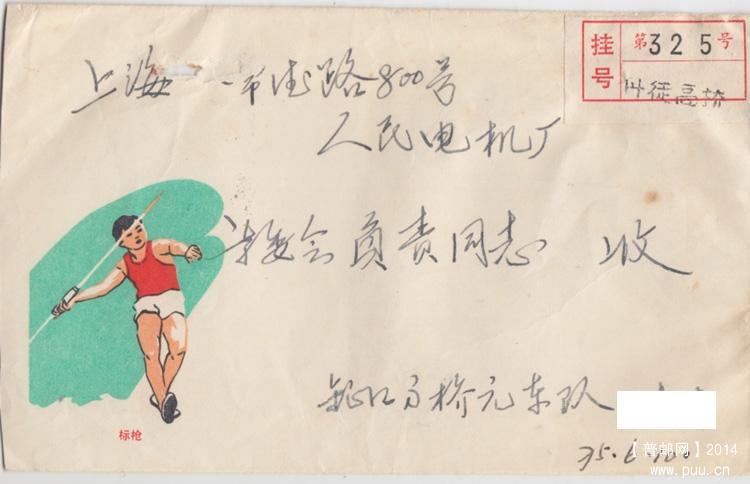 挂号 第325号
丹徒高桥
上海 市 路800号
人民电机厂
革委会负责同志 收
标枪
镇江高桥元东队
75.6
【普邮网】2014
www.puu.cn